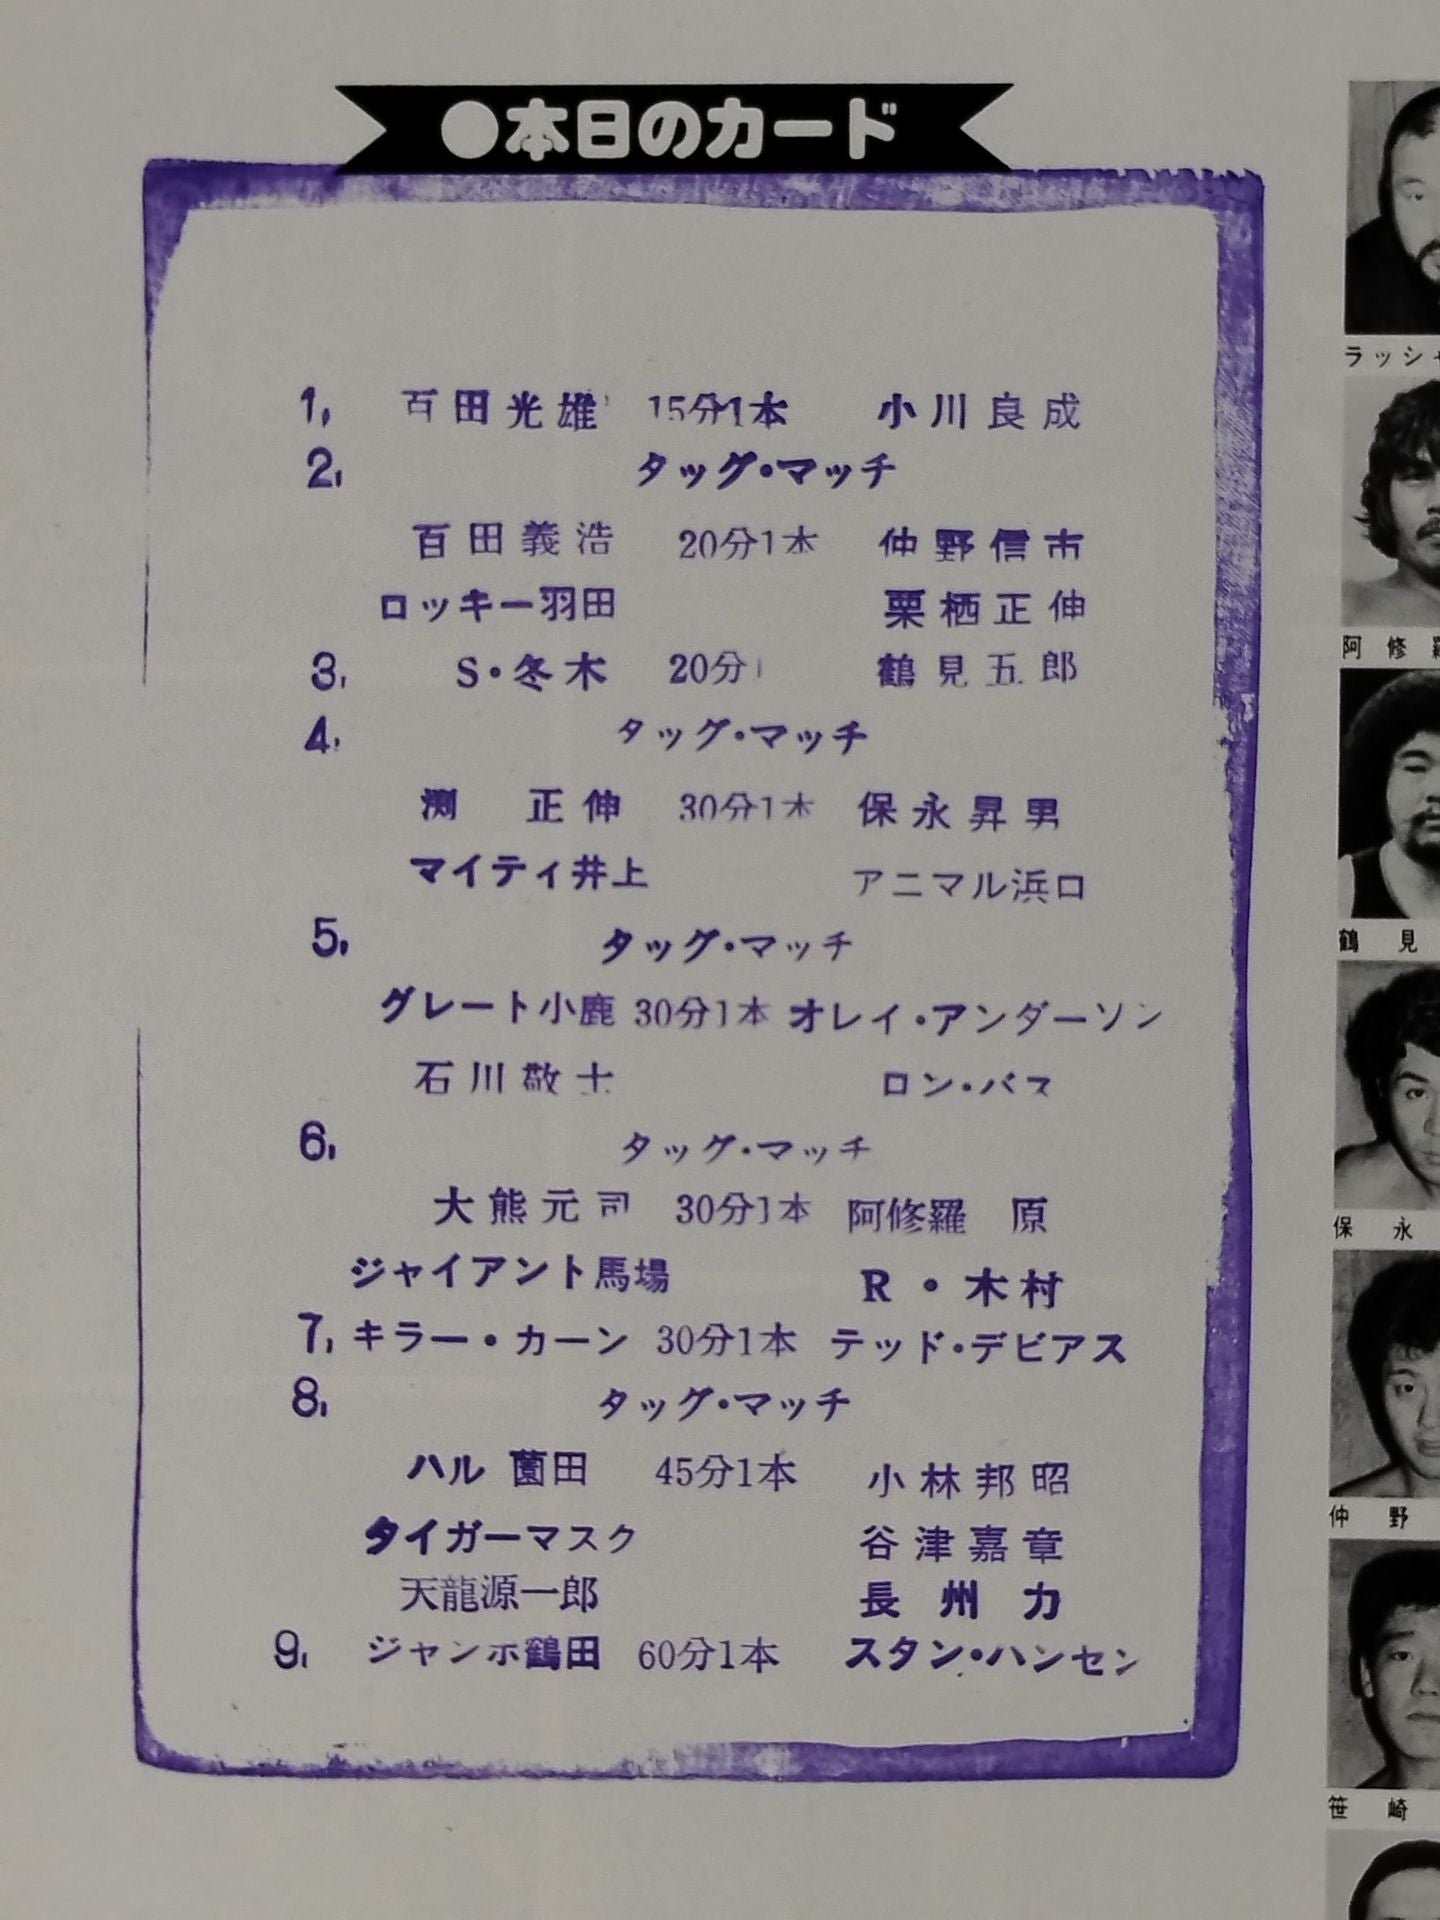 ●本日のカード
1, 百田光雄 15分1本 小川良成
2, タッグ・マッチ
百田義浩 20分1本 仲野信市
ロッキー羽田 栗栖正伸
3, S・冬木 20分 鶴見五郎
4, タッグ・マッチ
渕 正伸 30分1本 保永昇男
マイティ井上 アニマル浜口
5, タッグ・マッチ
グレート小鹿 30分1本 オレイ・アンダーソン
石川敬士 ロン・バス
6, タッグ・マッチ
大熊元司 30分1本 阿修羅 原
ジャイアント馬場 R・木村
7, キラー・カーン 30分1本 テッド・デビアス
8, タッグ・マッチ
ハル薗田 45分1本 小林邦昭
タイガーマスク 谷津嘉章
天龍源一郎 長州力
9, ジャンボ鶴田 60分1本 スタン・ハンセン
ラッシャ
阿修
鶴見
保永
仲野
笹崎